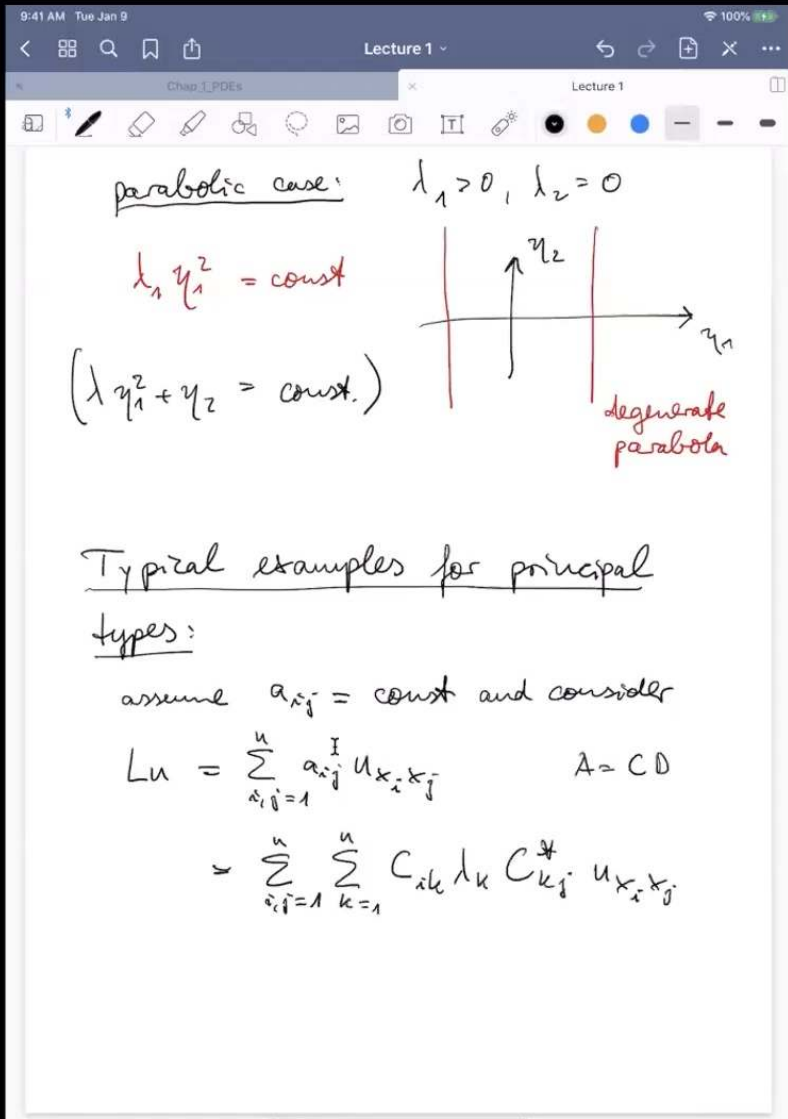 9:41 AM Tue Jan 9 100%
Lecture 1
Chap 1_PDEs Lecture 1
parabolic case: λ₁ > 0, λ₂ = 0
λ₁ η₁² = const
η₂
η₁
(λ η₁² + η₂ = const.)
degenerate
parabola
Typical examples for principal
types:
assume a_ij = const and consider
Lu = Σ_{i,j=1}^n a_ij u_{x_i x_j} A = CD
= Σ_{i,j=1}^n Σ_{k=1}^n C_ik λ_k C*_kj u_{x_i x_j}